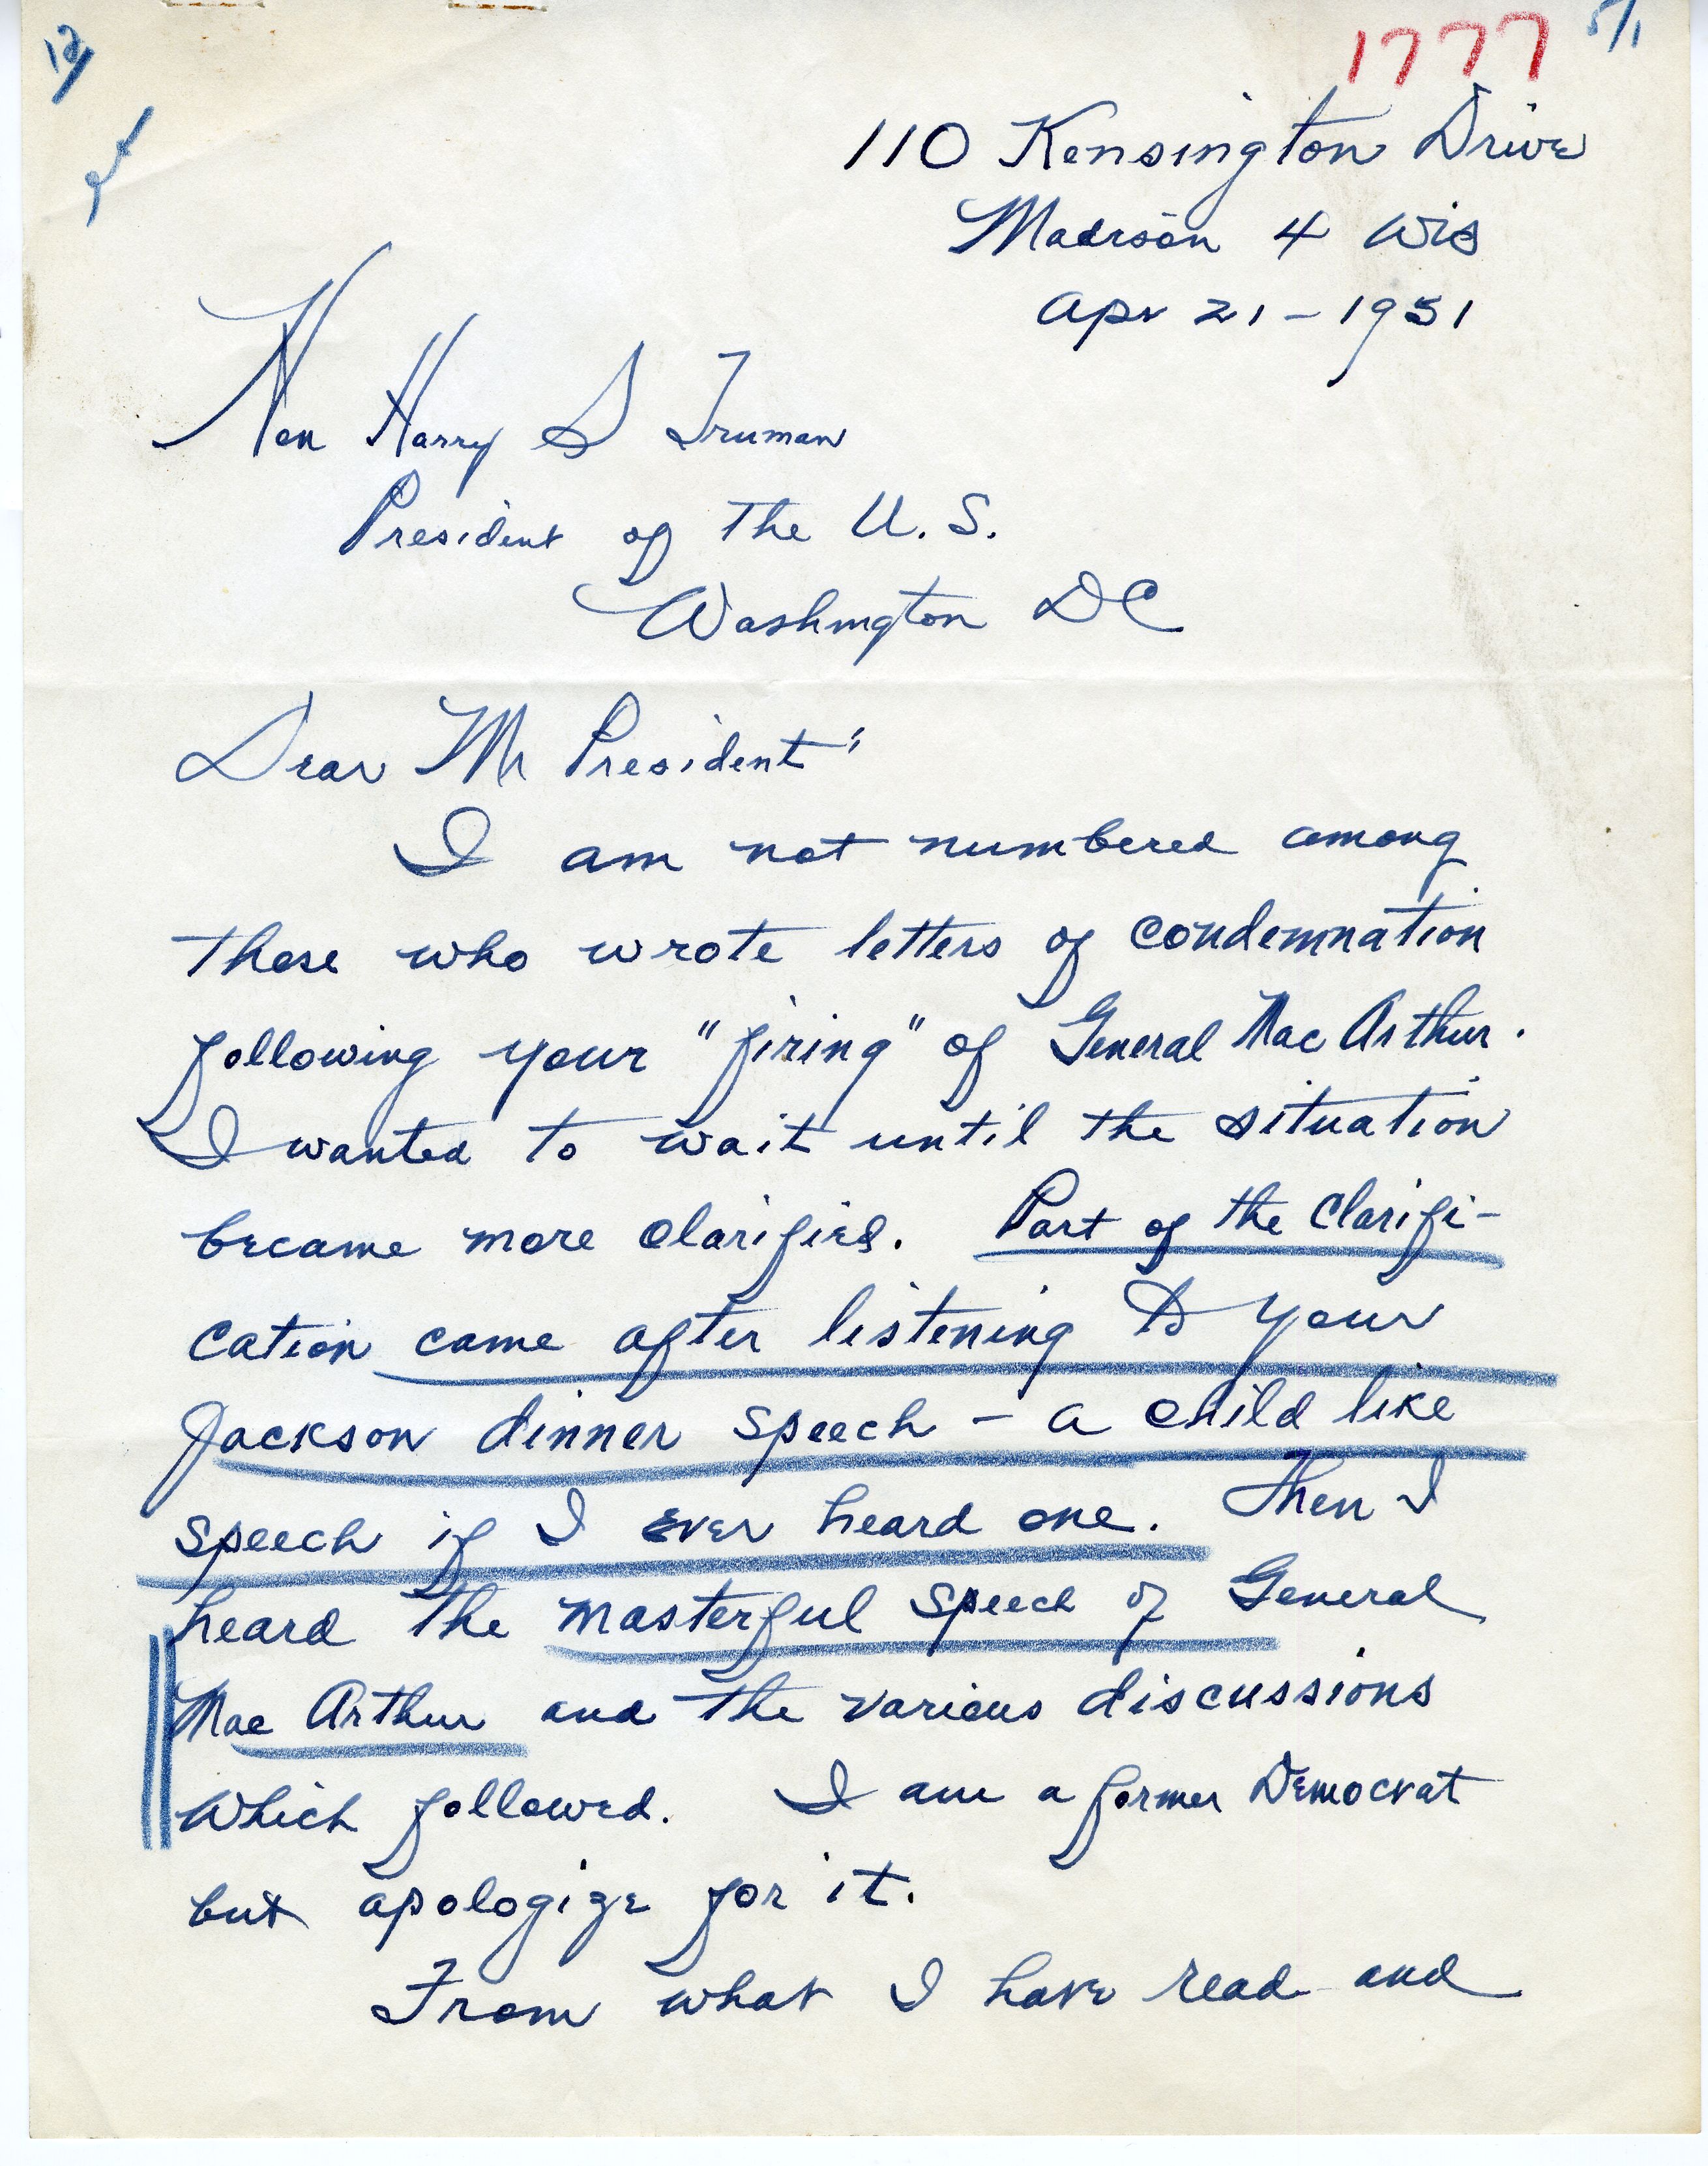 12
1777
5/1
110 Kensington Drive
Madison 4 Wis
Apr 21-1951
Hon Harry S Truman
President of the U.S.
Washington DC
Dear Mr President:
I am not numbered among
those who wrote letters of condemnation
following your "firing" of General MacArthur.
I wanted to wait until the situation
became more clarified. Part of the clarifi-
cation came after listening to your
Jackson dinner speech - a child like
speech if I ever heard one. Then I
heard the masterful speech of General
MacArthur and the various discussions
which followed. I am a former Democrat
but apologize for it.
From what I have read and